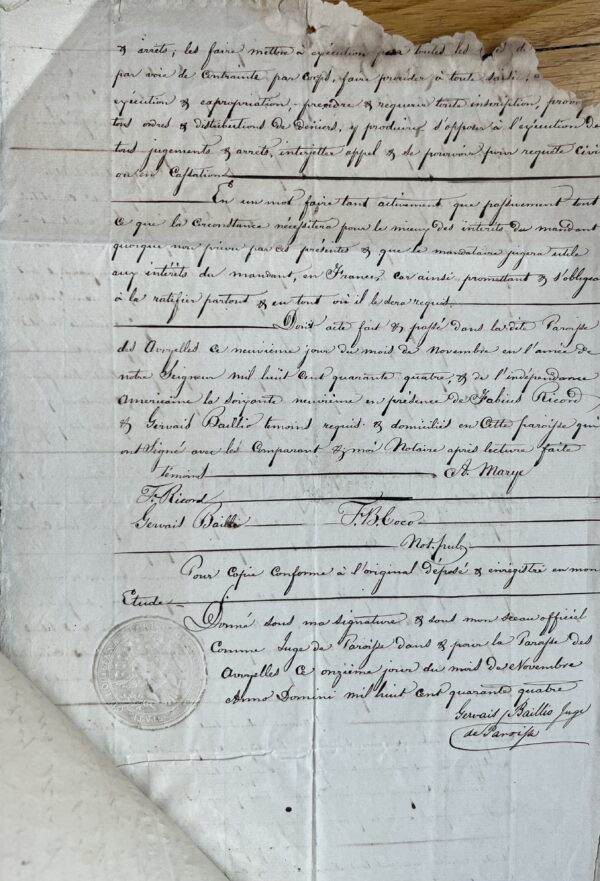 & arrêts; les faire mettre à exécution par toutes les
par voie de contrainte par corps, faire procéder à toute saisie,
exécution & expropriation, prendre & requerir toute inscription,
tous ordres & distributions de deniers, y produire, s'opposer à l'exécution de
tous jugements & arrêts, interjetter appel & se pourvoir pour requête civi
ou en Cassation
En un mot faire tant activement que passivement tout
ce que la circonstance nécessitera pour le mieux des intérêts du mandant
quoique non prévu par ces présentes & que le mandataire jugera utile
aux intérêts du mandant, en France, car ainsi promettant & s'obligea
à la ratifier partout & en tout où il le sera requis.
Dont acte fait & passé dans la dite Paroisse
des Avoyelles ce neuvième jour du mois de Novembre en l'année de
notre Seigneur mil huit cent quarante quatre, & de l'indépendance
Américaine la soixante neuvième en présence de Fabius Ricord
& Gervais Baillio temoins requis & domiciliés en Cette paroisse qui
ont Signé avec les Comparant & moi Notaire après lecture faite
témoins A. Marye
F. Ricord
Gervais Baillio F. B. Coco
Not. pub.
Pour Copie Conforme à l'original déposé & enregistré en mon
Etude
Donné sous ma signature & sous mon sceau officiel
Comme Juge de Paroisse dans & pour la Paroisse des
Avoyelles Ce onzième jour du mois de Novembre
Anno Domini mil huit cent quarante quatre
Gervais Baillio Juge
de Paroisse